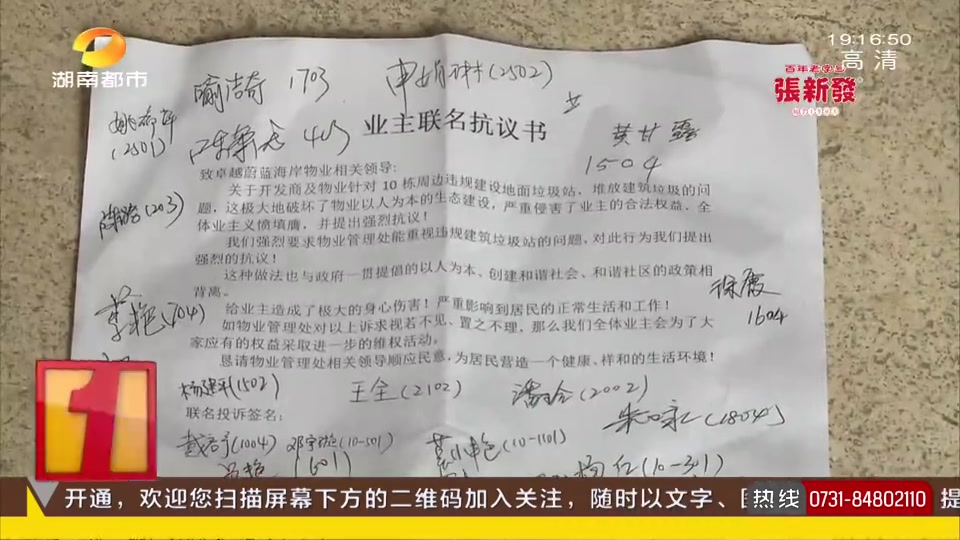 湖南都市
19:16:50
高清
百年老字号
張新發
喻洁奇 1703
(2502)
业主联名抗议书
(2501)
403
黄甘露
1504
致卓越蔚蓝海岸物业相关领导:
关于开发商及物业针对 10 栋周边违规建设地面垃圾站,堆放建筑垃圾的问
题,这极大地破坏了物业以人为本的生态建设,严重侵害了业主的合法权益,全
体业主义愤填膺,并提出强烈抗议!
(203)
我们强烈要求物业管理处能重视违规建筑垃圾站的问题,对此行为我们提出
强烈的抗议!
这种做法也与政府一贯提倡的以人为本、创建和谐社会、和谐社区的政策相
背离。
徐霞
1604
给业主造成了极大的身心伤害!严重影响到居民的正常生活和工作!
(704)
如物业管理处对以上诉求视若不见、置之不理,那么我们全体业主会为了大
家应有的权益采取进一步的维权活动。
恳请物业管理处相关领导顺应民意,为居民营造一个健康、祥和的生活环境!
杨建平(1502)
王全(2102)
潘玲(2002)
联名投诉签名:
(1804)
(1004)
邓宇(10-501)
(10-1101)
(601)
杨红(10-301)
1
开通,欢迎您扫描屏幕下方的二维码加入关注,随时以文字、
热线 0731-84802110
提